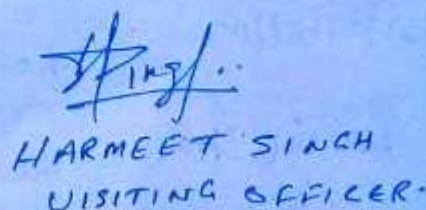 HARMEET SINGH
VISITING OFFICER.